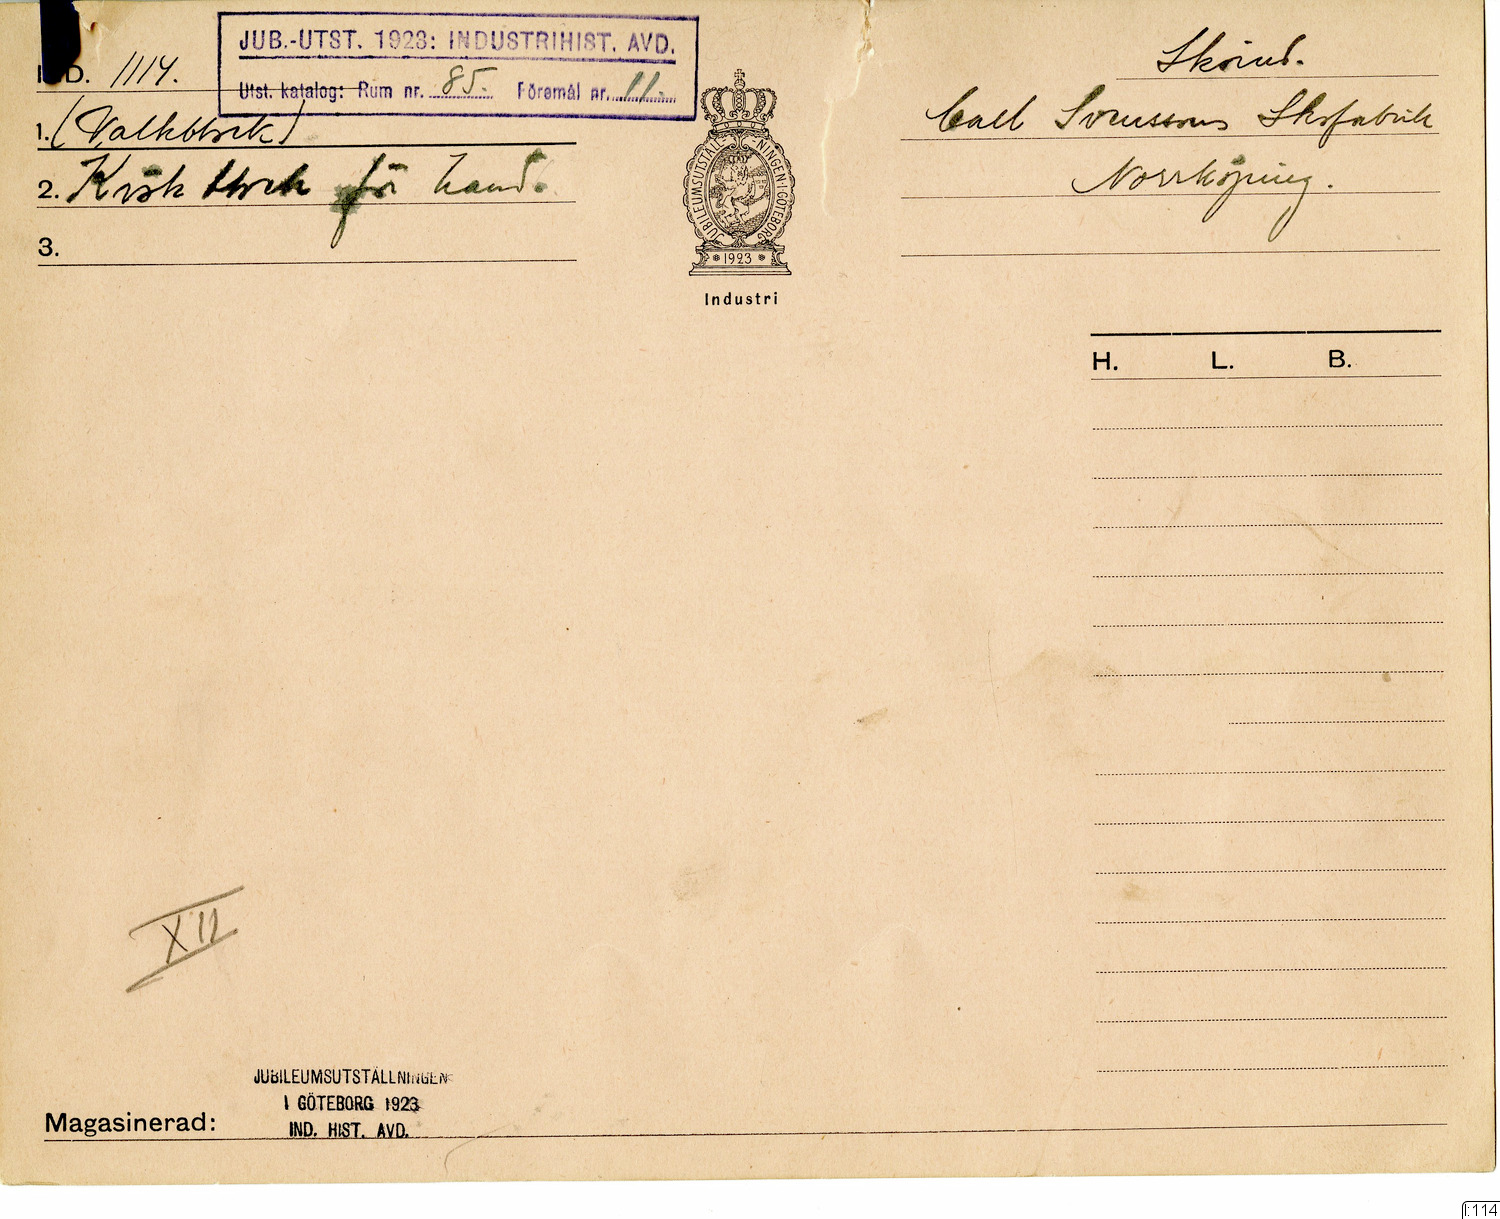 JUB.-UTST. 1923: INDUSTRIHIST. AVD.
Utst. katalog: Rum nr. 85. Föremål nr. 11.
D. 1114.
1. (Valkblock)
2. för hand.
3.
JUBILEUMSUTSTÄLLNINGEN I GÖTEBORG
1923
Industri
Skoind.
Carl Svenssons Skofabrik
Norrköping.
H. L. B.
XII
JUBILEUMSUTSTÄLLNINGEN
I GÖTEBORG 1923
IND. HIST. AVD.
Magasinerad:
I:114